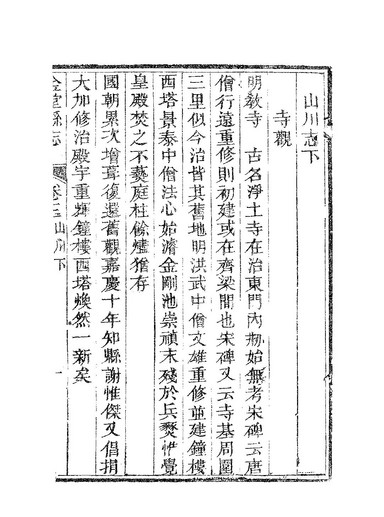 山川志下
寺觀
明敎寺　古名淨土寺在治東門內刱始無考宋碑云唐
僧行遠重修則初建或在齊梁間也宋碑又云寺基周圍
三里似今治皆其舊地明洪武中僧文雄重修並建鐘樓
西塔景泰中僧法心始濬金剛池崇禎末殘於兵燹惟覺
皇殿焚之不爇庭柱餘燼猶存
國朝累次增葺復還舊觀嘉慶十年知縣謝惟傑又倡捐
大加修治殿宇重輝鐘樓西塔煥然一新矣
金堂縣志　卷之　山川下　一